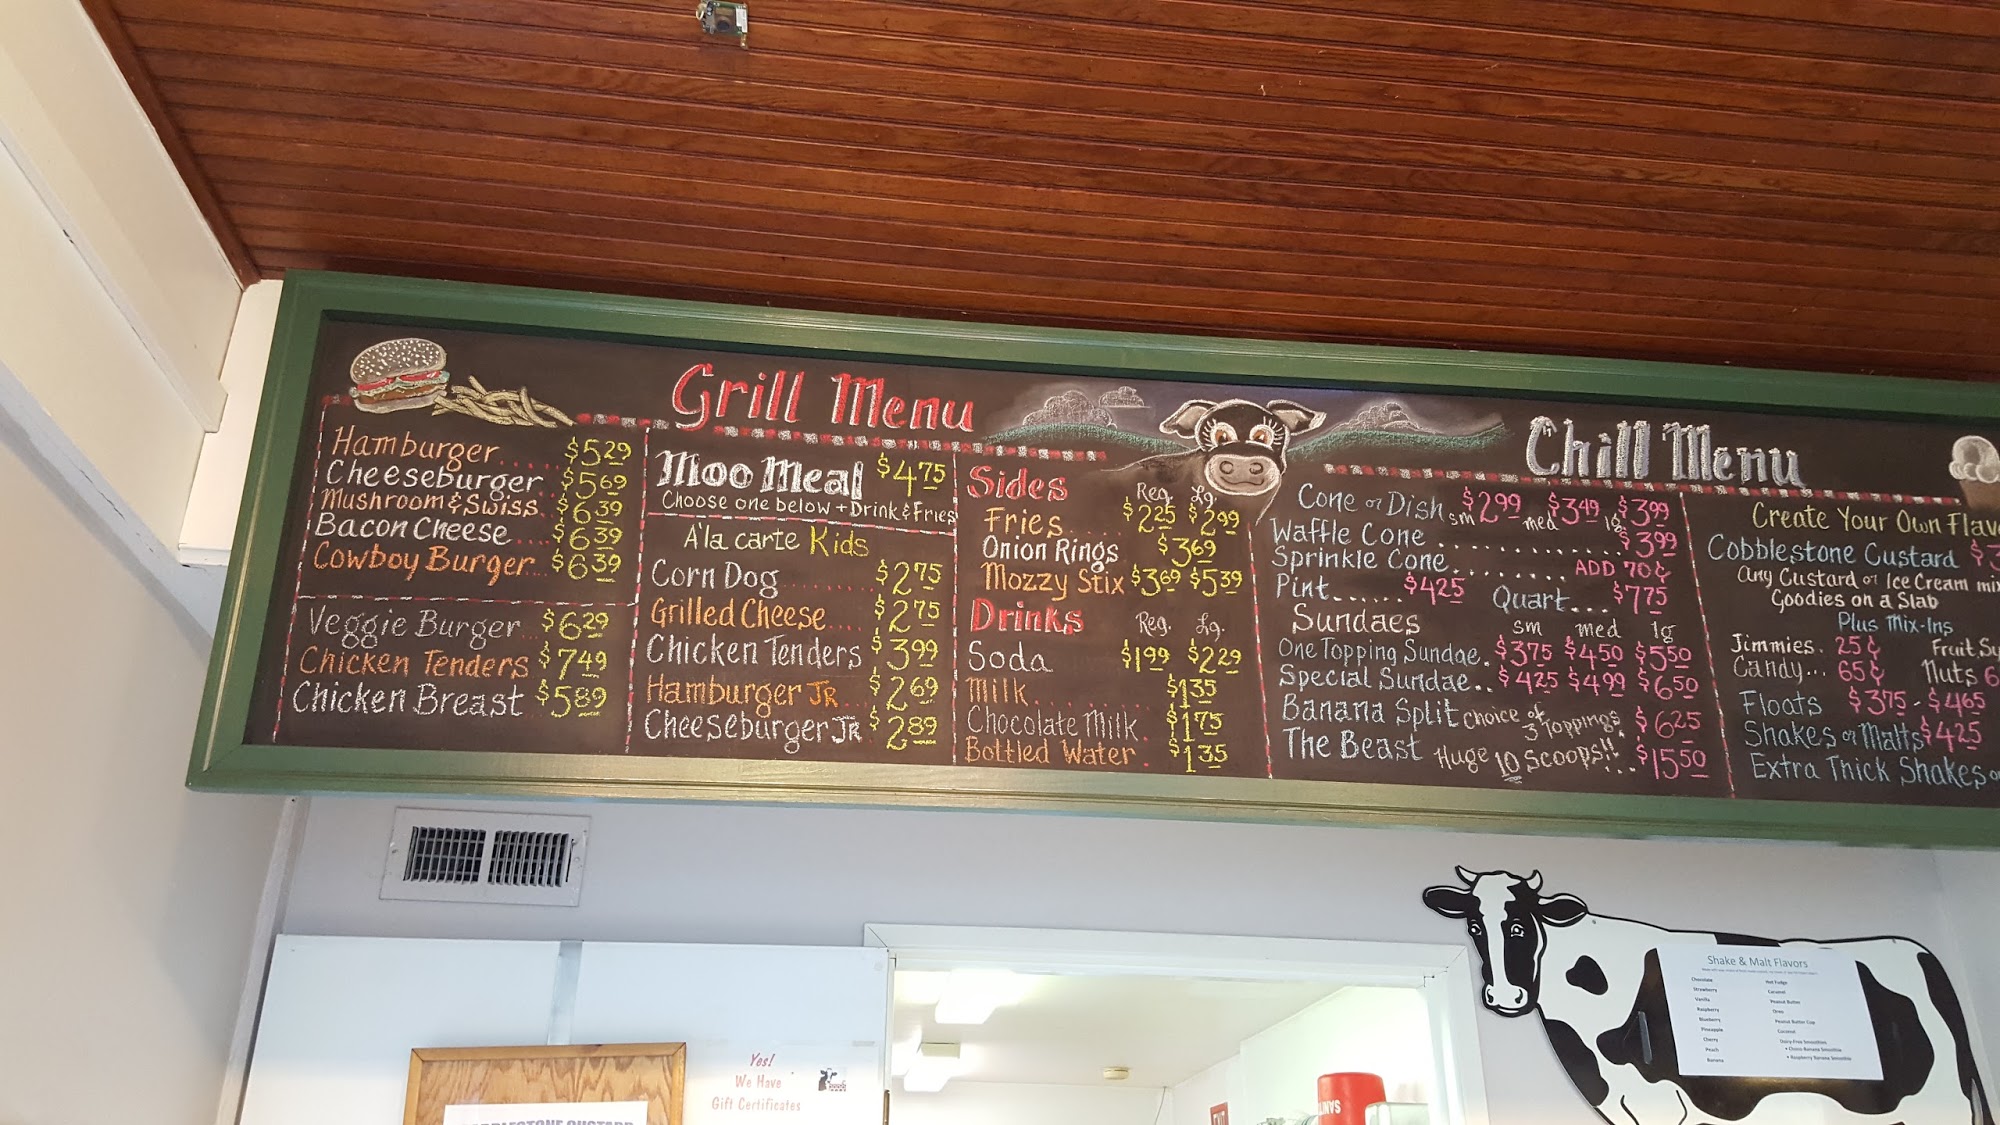 Grill Menu
Hamburger...... $5.29
Cheeseburger.. $5.69
Mushroom & Swiss. $6.39
Bacon Cheese... $6.39
Cowboy Burger... $6.39
Veggie Burger.. $6.29
Chicken Tenders $7.49
Chicken Breast $5.89
Moo Meal $4.75
Choose one below + Drink & Fries
A'la carte Kids
Corn Dog....... $2.75
Grilled Cheese.... $2.75
Chicken Tenders $3.99
Hamburger JR... $2.69
Cheeseburger JR $2.89
Sides Reg. Lg.
Fries.... $2.25 $2.99
Onion Rings $3.69
Mozzy Stix $3.69 $5.39
Drinks Reg. Lg.
Soda $1.99 $2.29
Milk......... $1.35
Chocolate Milk. $1.75
Bottled Water. $1.35
Chill Menu
Cone or Dish sm $2.99 med $3.49 lg. $3.99
Waffle Cone ............. $3.99
Sprinkle Cone........ ADD 70¢
Pint...... $4.25 Quart... $7.75
Sundaes sm med lg
One Topping Sundae. $3.75 $4.50 $5.50
Special Sundae.. $4.25 $4.99 $6.50
Banana Split choice of 3 Toppings. $6.25
The Beast Huge 10 Scoops!!... $15.50
Create Your Own Flav
Cobblestone Custard $3
Any Custard or Ice Cream mix
Goodies on a Slab
Plus Mix-Ins
Jimmies. 25¢ Fruit Sy
Candy... 65¢ Nuts 6
Floats $3.75 - $4.65
Shakes or Malts $4.25
Extra Thick Shakes or
Shake & Malt Flavors
Chocolate
Strawberry
Vanilla
Raspberry
Blueberry
Pineapple
Cherry
Peach
Banana
Hot Fudge
Caramel
Peanut Butter
Oreo
Peanut Butter Cup
Coconut
Dairy-Free Smoothies
• Raspberry Banana Smoothie
Yes!
We Have
Gift Certificates
EXIT
SANIT